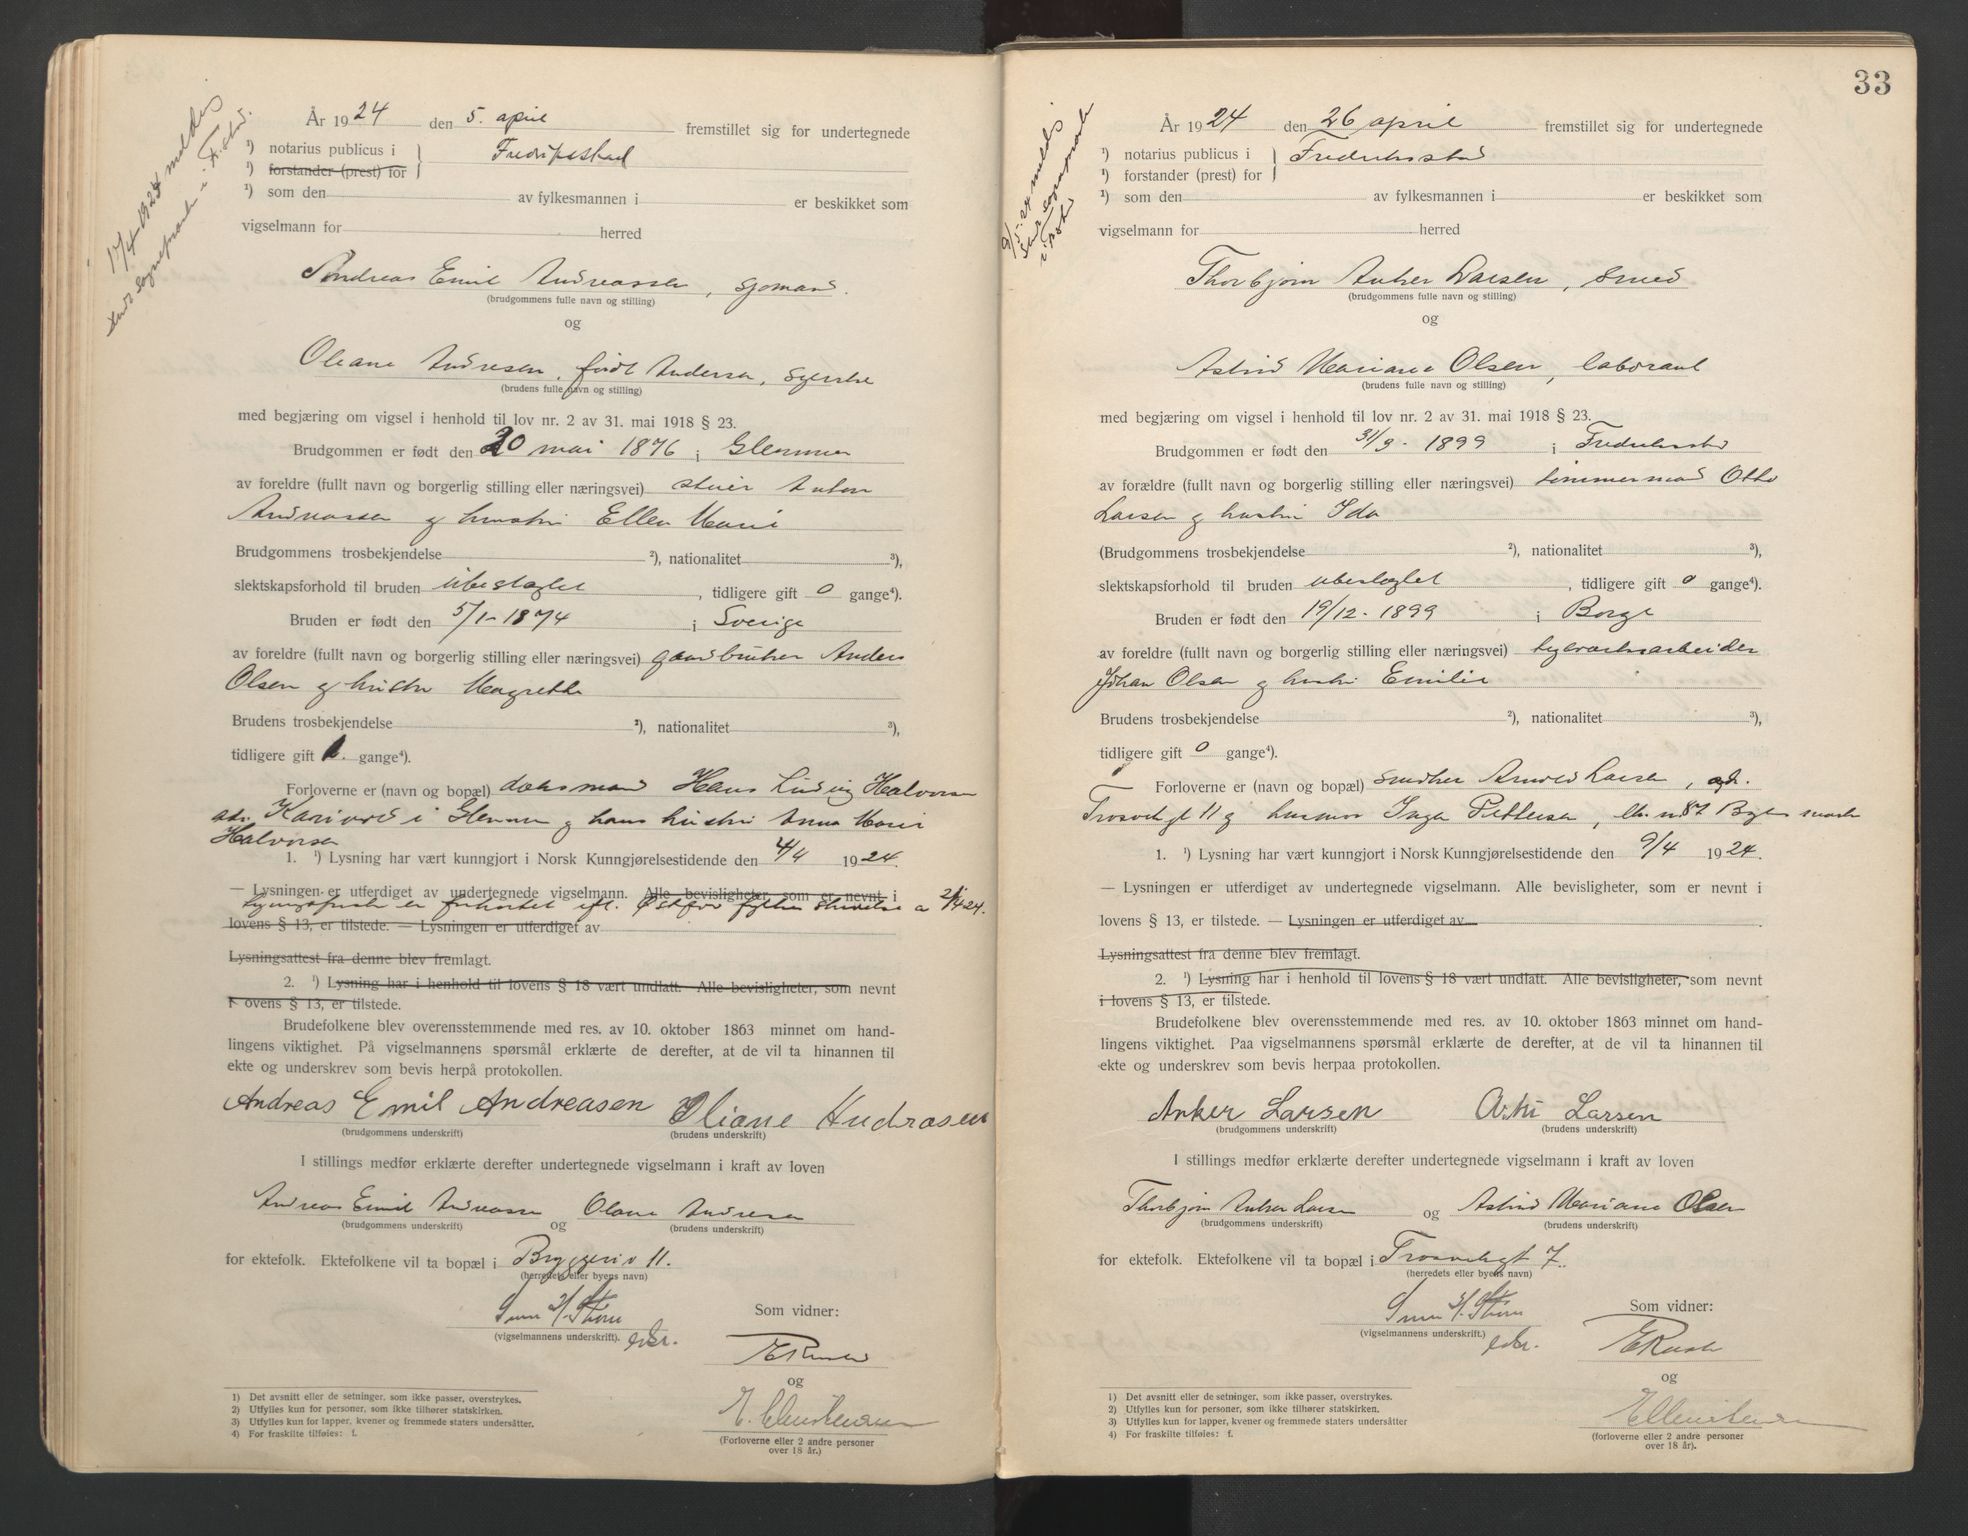 17/4-1924 meldt
sogneprest i F.stad.
År 1924 den 5. april fremstillet sig for undertegnede
¹) notarius publicus i } Fredrikstad
¹) forstander (prest) for
¹) som den av fylkesmannen i er beskikket som
vigselmann for herred
Andreas Emil Andreassen, sjømand.
(brudgommens fulle navn og stilling)
og
Oleane Andresen, født Andersen, syerske
(brudens fulle navn og stilling)
med begjæring om vigsel i henhold til lov nr. 2 av 31. mai 1918 § 23.
Brudgommen er født den 20 mai 1876 i Glemmen
av foreldre (fullt navn og borgerlig stilling eller næringsvei) stuer Anton
Andreassen og hustru Ellen Marie
Brudgommens trosbekjendelse ²), nationalitet ³),
slektskapsforhold til bruden ubeslegtet, tidligere gift 0 gange⁴).
Bruden er født den 5/1-1874 i Sverige
av foreldre (fullt navn og borgerlig stilling eller næringsvei) gaardbruker Anders
Olsen og hustru Magrette
Brudens trosbekjendelse ²), nationalitet ³),
tidligere gift 1. gange⁴).
Forloverne er (navn og bopæl) Hans Ludvig Halvorsen
adr. i Glemmen og hans hustru Anna Marie
Halvorsen
1. ¹) Lysning har vært kunngjort i Norsk Kunngjørelsestidende den 4/4 1924.
— Lysningen er utferdiget av undertegnede vigselmann. Alle bevisligheter, som er nevnt i
Lysningsfristen er forkortet ifl. Østfold fylkes skrivelse a 2/4 24.
lovens § 13, er tilstede. — Lysningen er utferdiget av
Lysningsattest fra denne blev fremlagt.
2. ¹) Lysning har i henhold til lovens § 18 vært undlatt. Alle bevisligheter, som nevnt
i lovens § 13, er tilstede.
Brudefolkene blev overensstemmende med res. av 10. oktober 1863 minnet om hand-
lingens viktighet. På vigselmannens spørsmål erklærte de derefter, at de vil ta hinannen til
ekte og underskrev som bevis herpå protokollen.
Andreas Emil Andreasen Oliane Andrasen
(brudgommens underskrift) (brudens underskrift)
I stillings medfør erklærte derefter undertegnede vigselmann i kraft av loven
Andreas Emil Andreassen og Oleane Andresen
(brudgommens underskrift) (brudens underskrift)
for ektefolk. Ektefolkene vil ta bopæl i Bryggeriv 11.
(herredets eller byens navn)
Som vidner:
(vigselmannens underskrift).
og
E. Christensen
(Forloverne eller 2 andre personer
over 18 år.)
1) Det avsnitt eller de setninger, som ikke passer, overstrykes.
2) Utfylles kun for personer, som ikke tilhører statskirken.
3) Utfylles kun for lapper, kvener og fremmede staters undersåtter.
4) For fraskilte tilføies: f.
33
9/5-24 meldt
sogneprest
i F.stad
År 1924 den 26 april fremstillet sig for undertegnede
¹) notarius publicus i } Fredriksstad
¹) forstander (prest) for
¹) som den av fylkesmannen i er beskikket som
vigselmann for herred
Thorbjørn Anker Larsen, smed
(brudgommens fulle navn og stilling)
og
Astrid Mariane Olsen, laborant
(brudens fulle navn og stilling)
med begjæring om vigsel i henhold til lov nr. 2 av 31. mai 1918 § 23.
Brudgommen er født den 31/3-1899 i Fredriksstad
av forældre (fullt navn og borgerlig stilling eller næringsvei) tømmermand Otto
Larsen og hustru Ida
(Brudgommens trosbekjendelse ²), nationalitet ³),
slektskapsforhold til bruden ubeslegtet, tidligere gift 0 gange⁴).
Bruden er født den 19/12-1899 i Borge
av foreldre (fullt navn og borgerlig stilling eller næringsvei) teglverksarbeider
Johan Olsen og hustru Emilie
Brudens trosbekjendelse ²), nationalitet ³),
tidligere gift 0 gange⁴).
Forloverne er (navn og bopæl) snedker Arnold Larsen, adr.
Trosvikgt 11 og husmor Inga Pettersen,
1. ¹) Lysning har vært kunngjort i Norsk Kunngjørelsestidende den 9/4 1924.
— Lysningen er utferdiget av undertegnede vigselmann. Alle bevisligheter, som er nevnt i
lovens § 13, er tilstede. — Lysningen er utferdiget av
Lysningsattest fra denne blev fremlagt.
2. ¹) Lysning har i henhold til lovens § 18 vært undlatt. Alle bevisligheter, som nevnt
i lovens § 13, er tilstede.
Brudefolkene blev overensstemmende med res. av 10. oktober 1863 minnet om hand-
lingens viktighet. Paa vigselmannens spørsmål erklærte de derefter, at de vil ta hinannen til
ekte og underskrev som bevis herpaa protokollen.
Anker Larsen Larsen
(brudgommens underskrift) (brudens underskrift)
I stillings medfør erklærte derefter undertegnede vigselmann i kraft av loven
Thorbjørn Anker Larsen og Astrid Mariane Olsen
(brudgommens underskrift) (brudens underskrift)
for ektefolk. Ektefolkene vil ta bopæl i Trosvikgt 7.
(herredets eller byens navn)
Som vidner:
(vigselmannens underskrift).
og
E Christensen
(forloverne eller 2 andre personer
over 18 år).
1) Det avsnitt eller de setninger, som ikke passer, overstrykes.
2) Utfylles kun for personer, som ikke tilhører statskirken.
3) Utfylles kun for lapper, kvener og fremmede staters undersåtter
4) For fraskilte tilføies: f.